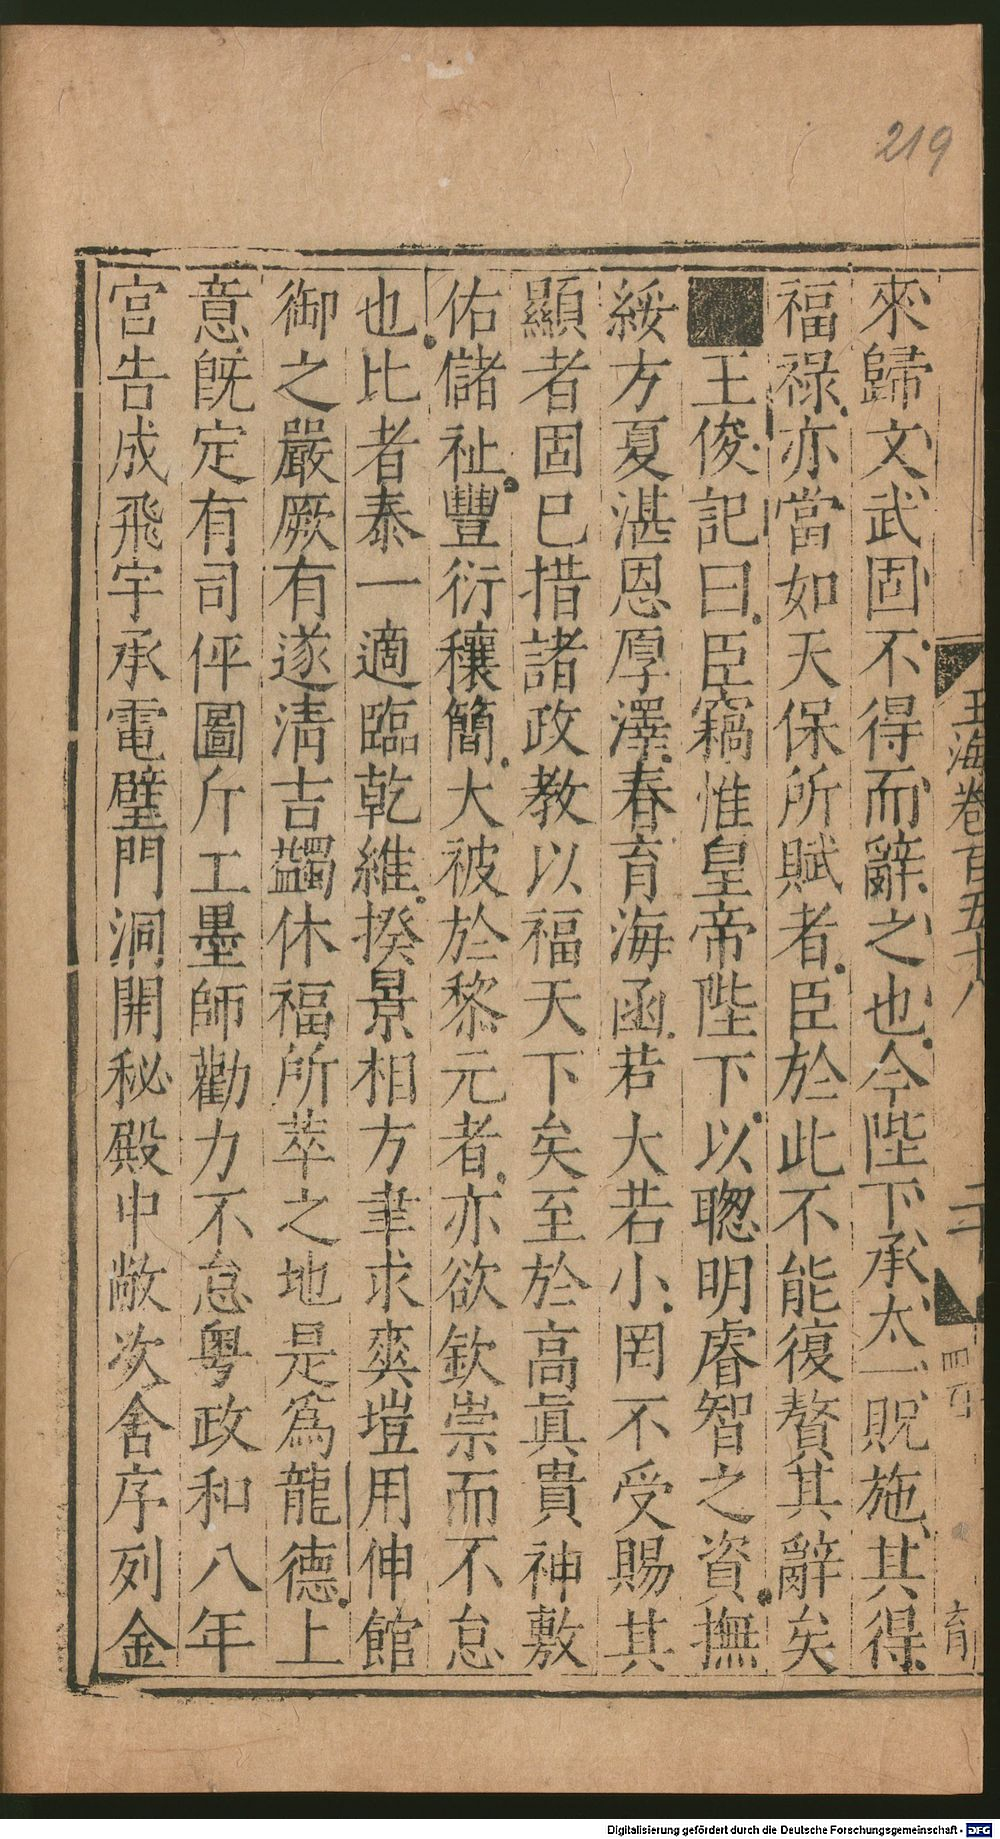 219
玉海卷百五十八
二十
育
來歸文武固不得而辭之也今陛下承太一貺施其得
福祿亦當如天保所賦者臣於此不能復贅其辭矣
王俊記曰臣竊惟皇帝陛下以聰明睿智之資撫
綏方夏湛恩厚澤春育海函若大若小罔不受賜其
顯者固已措諸政教以福天下矣至於高眞貴神敷
佑儲祉豐衍穰簡大被於黎元者亦欲欽崇而不怠
也比者泰一適臨乾維揆景相方聿求爽塏用伸館
御之嚴厥有遂淸吉蠲休福所萃之地是爲龍德上
意旣定有司伻圖斤工墨師勸力不怠粤政和八年
宮告成飛宇承電璧門洞開秘殿中敞次舍序列金
Digitalisierung gefördert durch die Deutsche Forschungsgemeinschaft - DFG